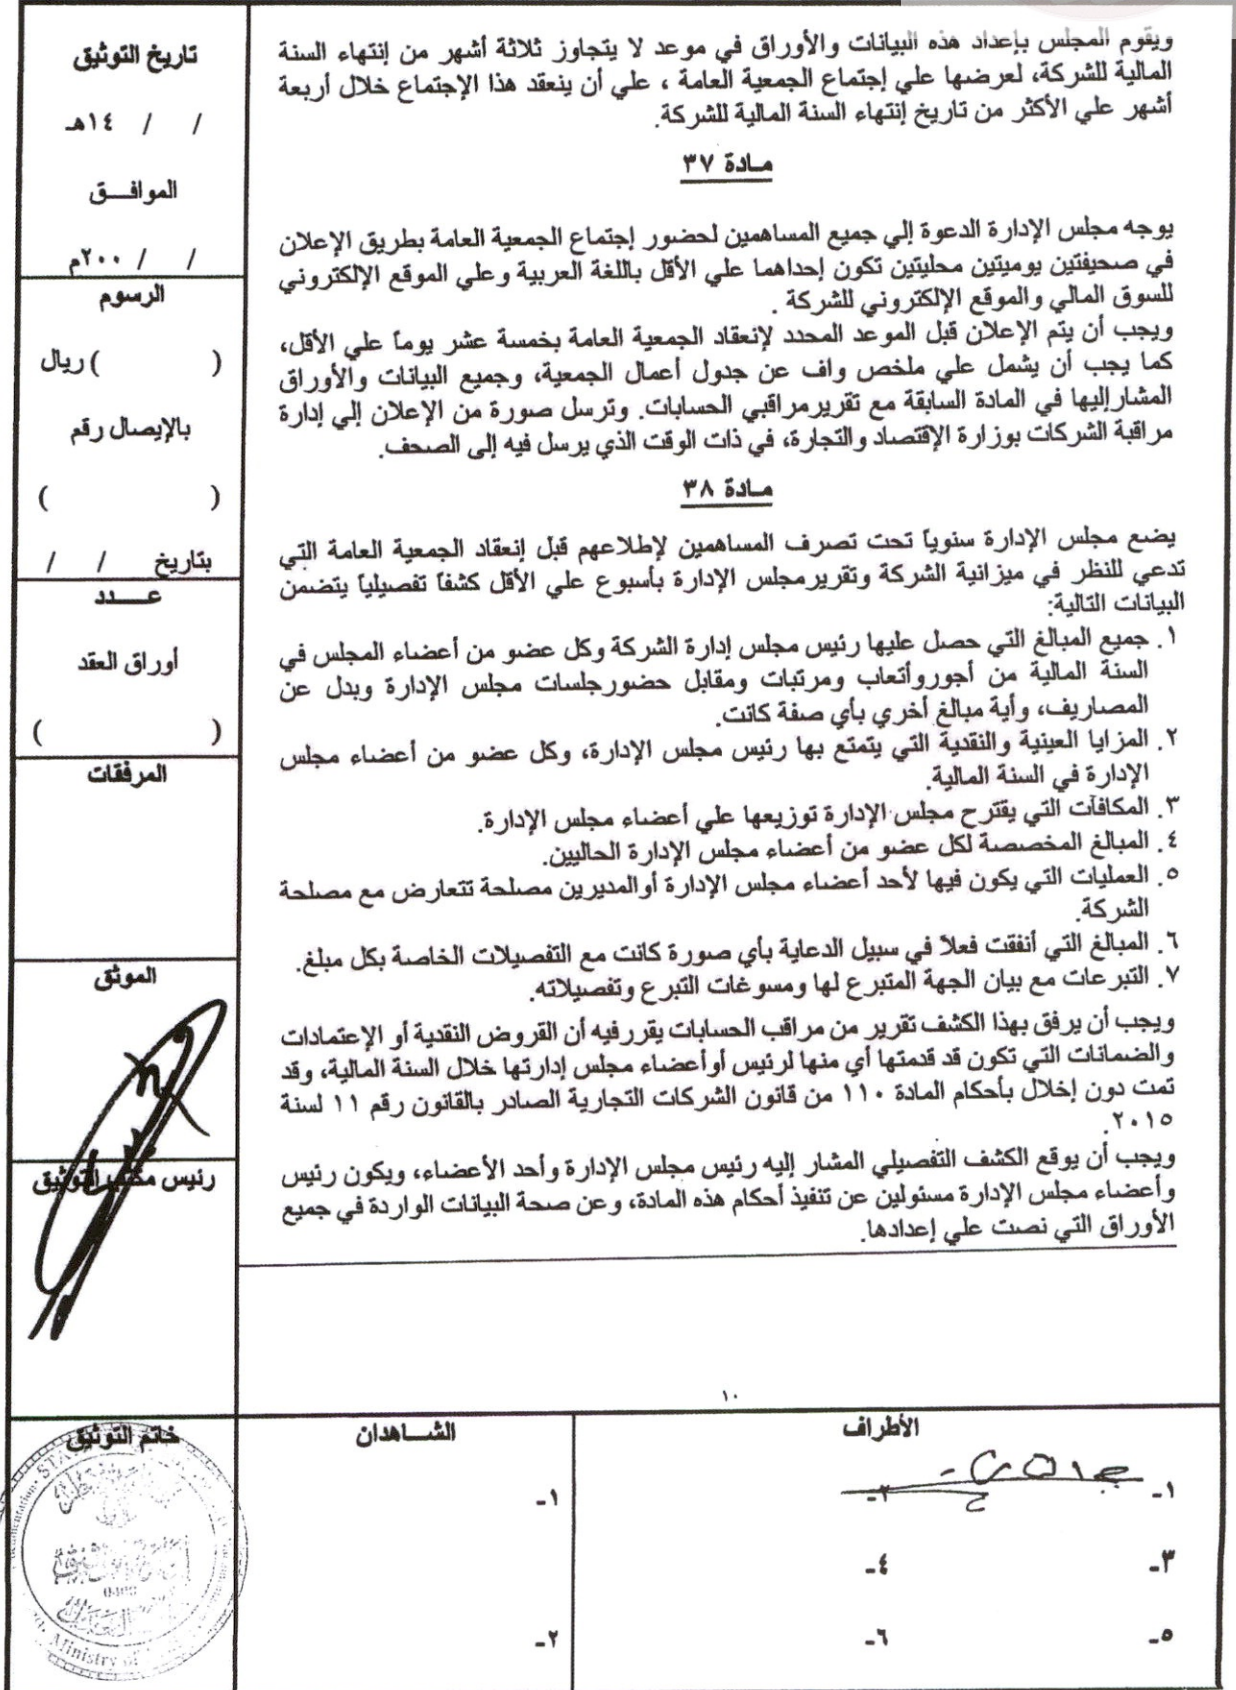 ويقوم المجلس بإعداد هذه البيانات والأوراق في موعد لا يتجاوز ثلاثة أشهر من إنتهاء السنة
المالية للشركة، لعرضها علي إجتماع الجمعية العامة ، علي أن ينعقد هذا الإجتماع خلال أربعة
أشهر علي الأكثر من تاريخ إنتهاء السنة المالية للشركة.
مـادة ٣٧
يوجه مجلس الإدارة الدعوة إلي جميع المساهمين لحضور إجتماع الجمعية العامة بطريق الإعلان
في صحيفتين يوميتين محليتين تكون إحداهما علي الأقل باللغة العربية وعلي الموقع الإلكتروني
للسوق المالي والموقع الإلكتروني للشركة .
ويجب أن يتم الإعلان قبل الموعد المحدد لإنعقاد الجمعية العامة بخمسة عشر يوماً علي الأقل،
كما يجب أن يشمل علي ملخص واف عن جدول أعمال الجمعية، وجميع البيانات والأوراق
المشارإليها في المادة السابقة مع تقريرمراقبي الحسابات. وترسل صورة من الإعلان إلي إدارة
مراقبة الشركات بوزارة الإقتصاد والتجارة، في ذات الوقت الذي يرسل فيه إلى الصحف.
مـادة ٣٨
يضع مجلس الإدارة سنوياً تحت تصرف المساهمين لإطلاعهم قبل إنعقاد الجمعية العامة التي
تدعي للنظر في ميزانية الشركة وتقريرمجلس الإدارة بأسبوع علي الأقل كشفاً تفصيلياً يتضمن
البيانات التالية:
١. جميع المبالغ التي حصل عليها رئيس مجلس إدارة الشركة وكل عضو من أعضاء المجلس في
السنة المالية من أجوروأتعاب ومرتبات ومقابل حضورجلسات مجلس الإدارة وبدل عن
المصاريف، وأية مبالغ أخري بأي صفة كانت.
٢. المزايا العينية والنقدية التي يتمتع بها رئيس مجلس الإدارة، وكل عضو من أعضاء مجلس
الإدارة في السنة المالية.
٣. المكافآت التي يقترح مجلس الإدارة توزيعها علي أعضاء مجلس الإدارة.
٤. المبالغ المخصصة لكل عضو من أعضاء مجلس الإدارة الحاليين.
٥. العمليات التي يكون فيها لأحد أعضاء مجلس الإدارة أوالمديرين مصلحة تتعارض مع مصلحة
الشركة.
٦. المبالغ التي أنفقت فعلاً في سبيل الدعاية بأي صورة كانت مع التفصيلات الخاصة بكل مبلغ.
٧. التبرعات مع بيان الجهة المتبرع لها ومسوغات التبرع وتفصيلاته.
ويجب أن يرفق بهذا الكشف تقرير من مراقب الحسابات يقررفيه أن القروض النقدية أو الإعتمادات
والضمانات التي تكون قد قدمتها أي منها لرئيس أوأعضاء مجلس إدارتها خلال السنة المالية، وقد
تمت دون إخلال بأحكام المادة ١١٠ من قانون الشركات التجارية الصادر بالقانون رقم ١١ لسنة
٢٠١٥.
ويجب أن يوقع الكشف التفصيلي المشار إليه رئيس مجلس الإدارة وأحد الأعضاء، ويكون رئيس
وأعضاء مجلس الإدارة مسئولين عن تنفيذ أحكام هذه المادة، وعن صحة البيانات الواردة في جميع
الأوراق التي نصت علي إعدادها.
١٠
تاريخ التوثيق
/ / ١٤هـ
الموافـــق
/ / ٢٠٠م
الرسوم
( ) ريال
بالإيصال رقم
( )
بتاريخ / /
عـــدد
أوراق العقد
( )
المرفقات
الموثق
رئيس مكتب التوثيق
الأطراف
١- ٢-
٣- ٤-
٥- ٦-
الشـــاهدان
١-
٢-
خاتم التوثيق
Ministry of